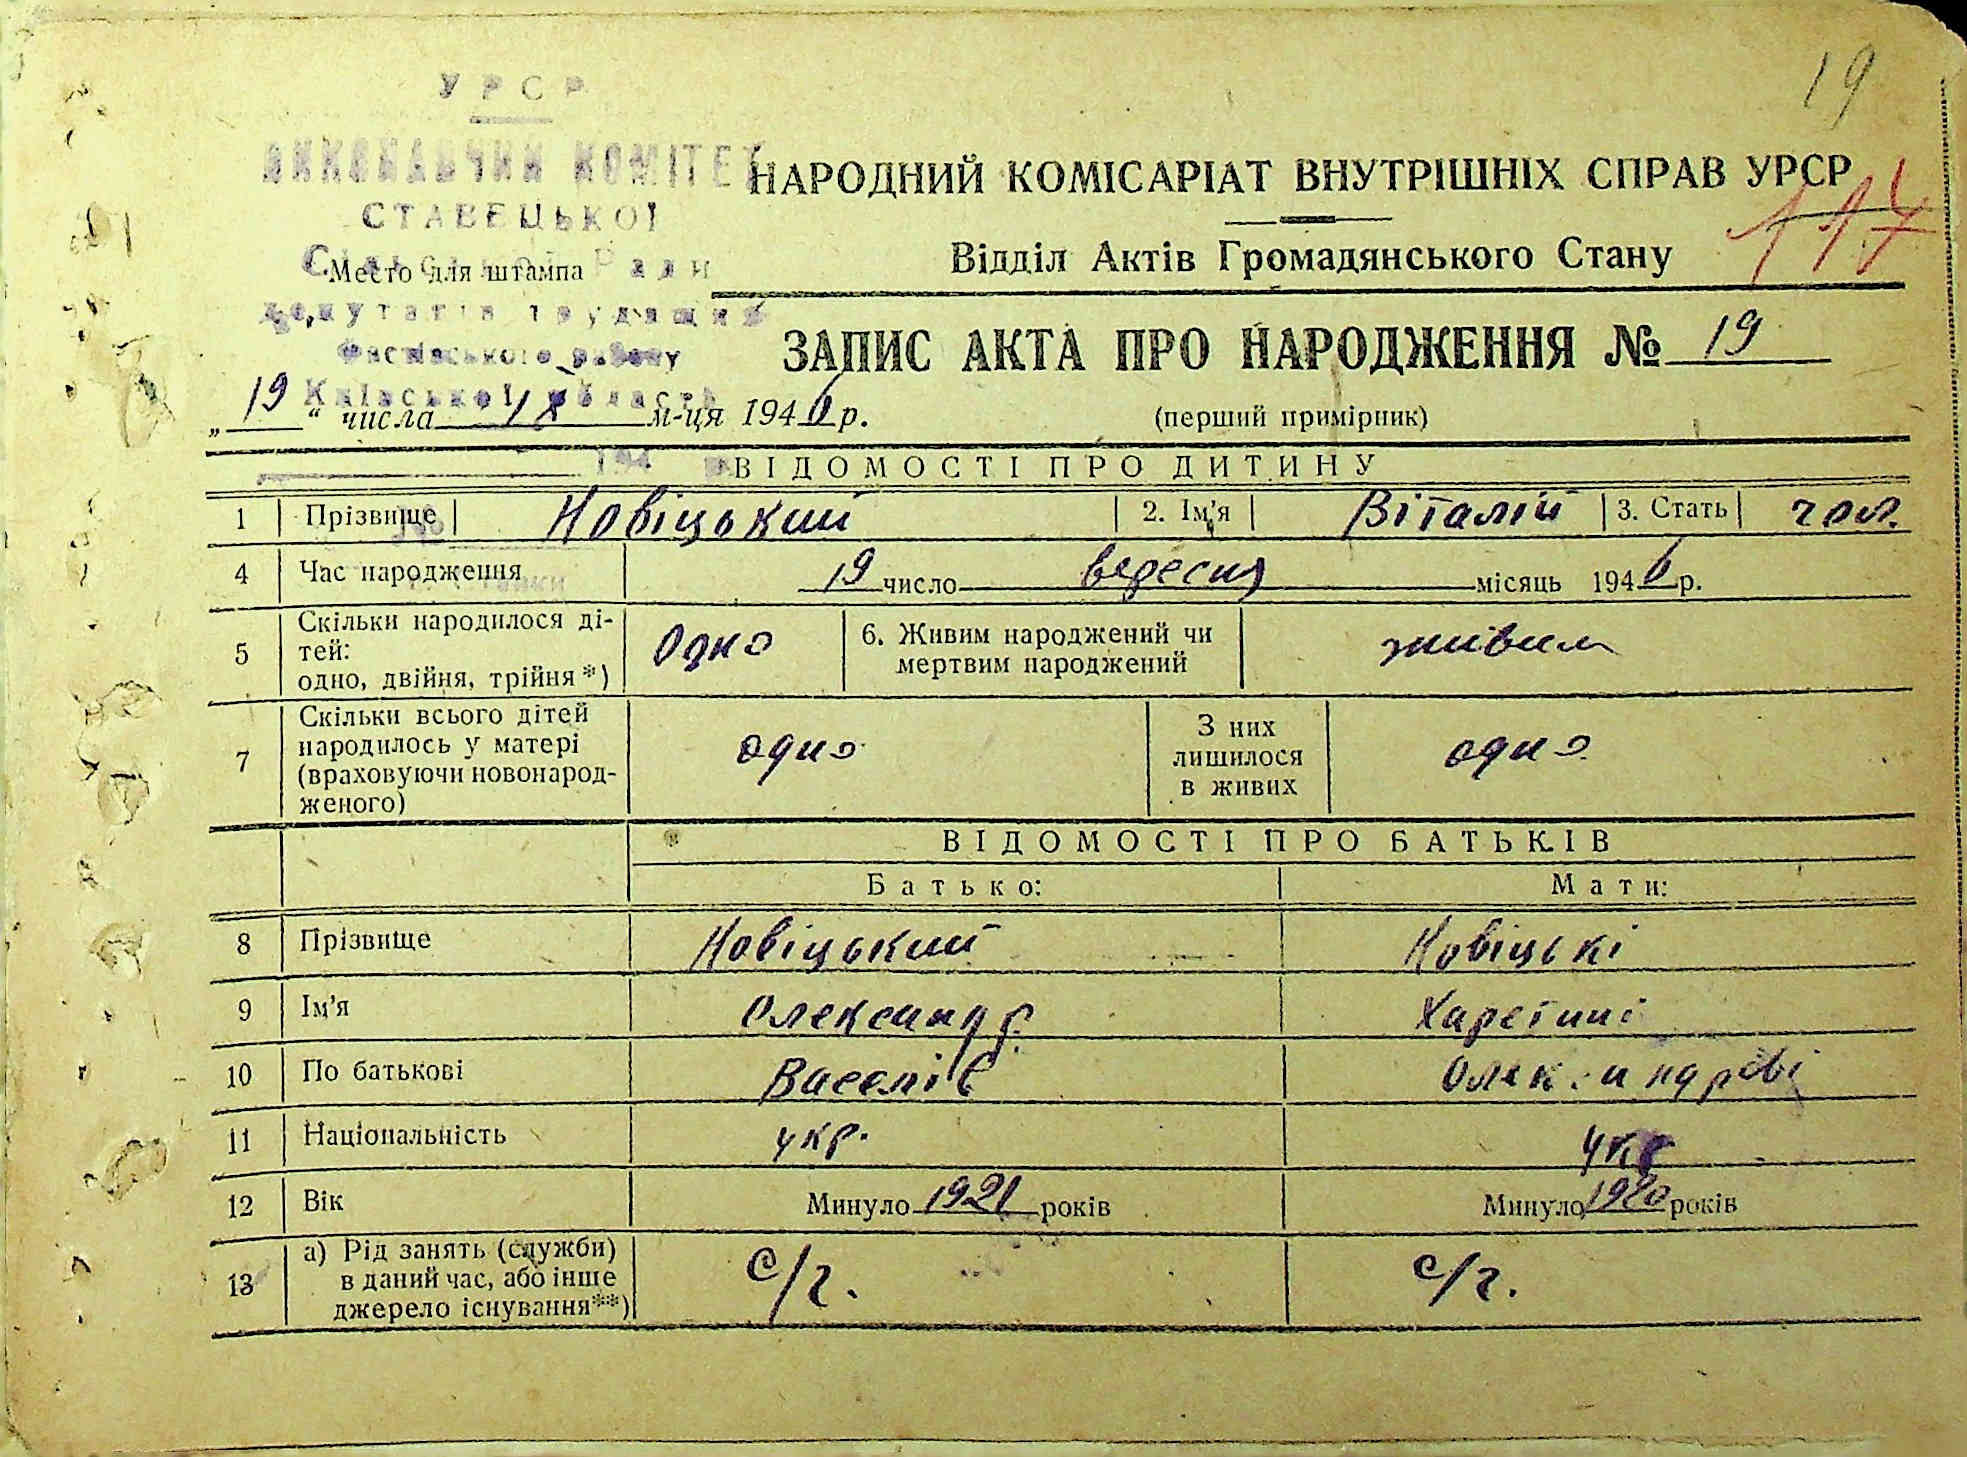 19
УРСР
ВИКОНАВЧИЙ КОМІТЕТ
СТАВЕЦЬКОЇ
Сільської Ради
депутатів трудящих
Фастівського району
Київської області
194
№
Место для штампа
НАРОДНИЙ КОМІСАРІАТ ВНУТРІШНІХ СПРАВ УРСР
117
Відділ Актів Громадянського Стану
ЗАПИС АКТА ПРО НАРОДЖЕННЯ № 19
„19“ числа IX м-ця 1946 р.
(перший примірник)
ВІДОМОСТІ ПРО ДИТИНУ
1 Прізвище Новіцький 2. Ім’я Віталій 3. Стать чол.
4 Час народження 19 число вересня місяць 1946 р.
5 Скільки народилося ді-
тей:
одно, двійня, трійня*) Одно
6. Живим народжений чи
мертвим народжений живим
7 Скільки всього дітей
народилось у матері
(враховуючи новонарод-
женого) одно
З них
лишилося
в живих одно
ВІДОМОСТІ ПРО БАТЬКІВ
Батько: Мати:
8 Прізвище Новіцький Новіцькі
9 Ім’я Олександр Харетині
10 По батькові Васелів Олександрові
11 Національність укр. укр
12 Вік Минуло 1921 років Минуло 1920 років
13 а) Рід занять (служби)
в даний час, або інше
джерело існування**) с/г. с/г.